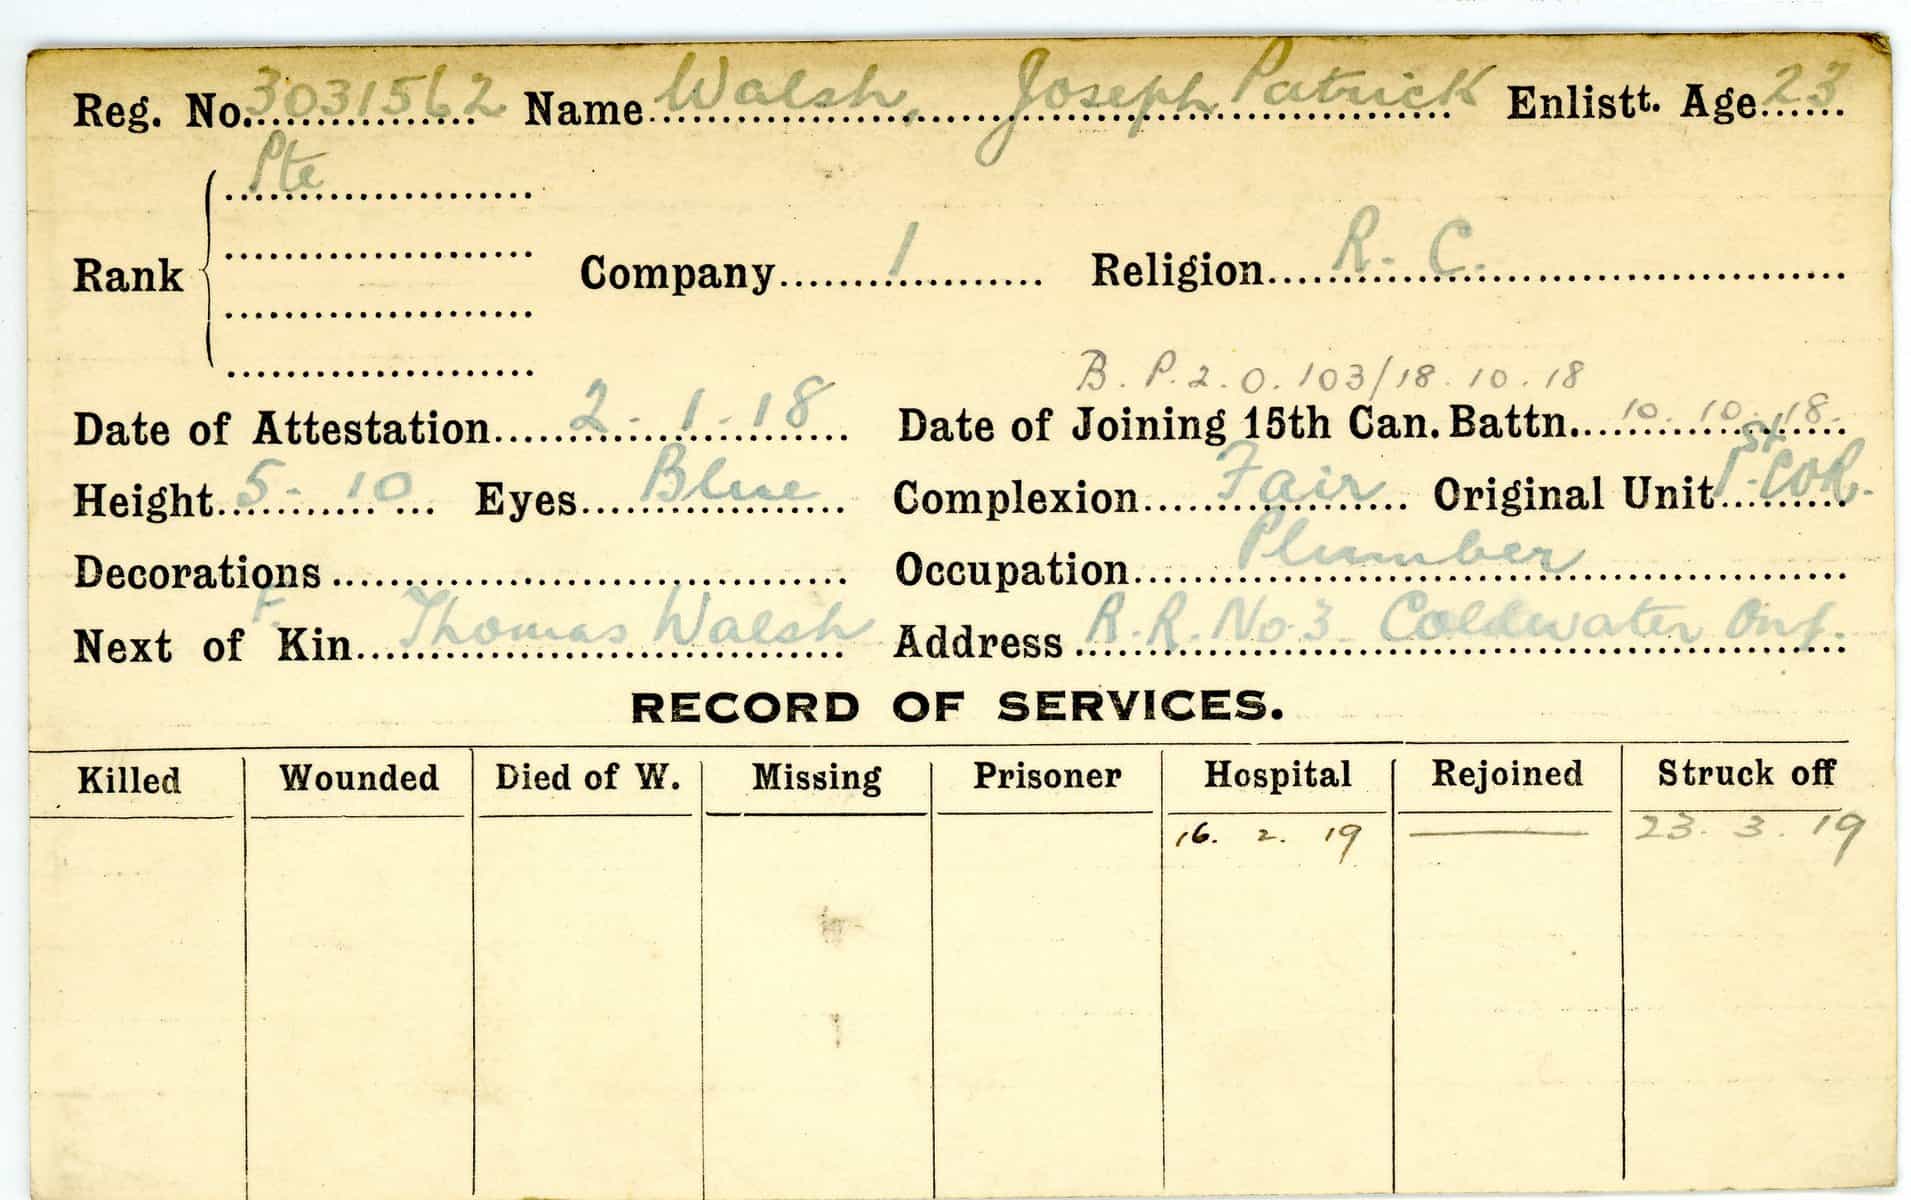 Reg. No. 3031562 Name Walsh, Joseph Patrick Enlistt. Age 23
Pte
Rank Company 1 Religion R. C.
B. P. 2. O. 103/18.10.18
Date of Attestation 2-1-18 Date of Joining 15th Can. Battn. 10.10.18.
Height 5-10 Eyes Blue Complexion Fair Original Unit 1st C.O.R.
Decorations Occupation Plumber
F.
Next of Kin Thomas Walsh Address R.R. No 3 Coldwater Ont.
RECORD OF SERVICES.
Killed Wounded Died of W. Missing Prisoner Hospital Rejoined Struck off
16. 2. 19 — 23. 3. 19